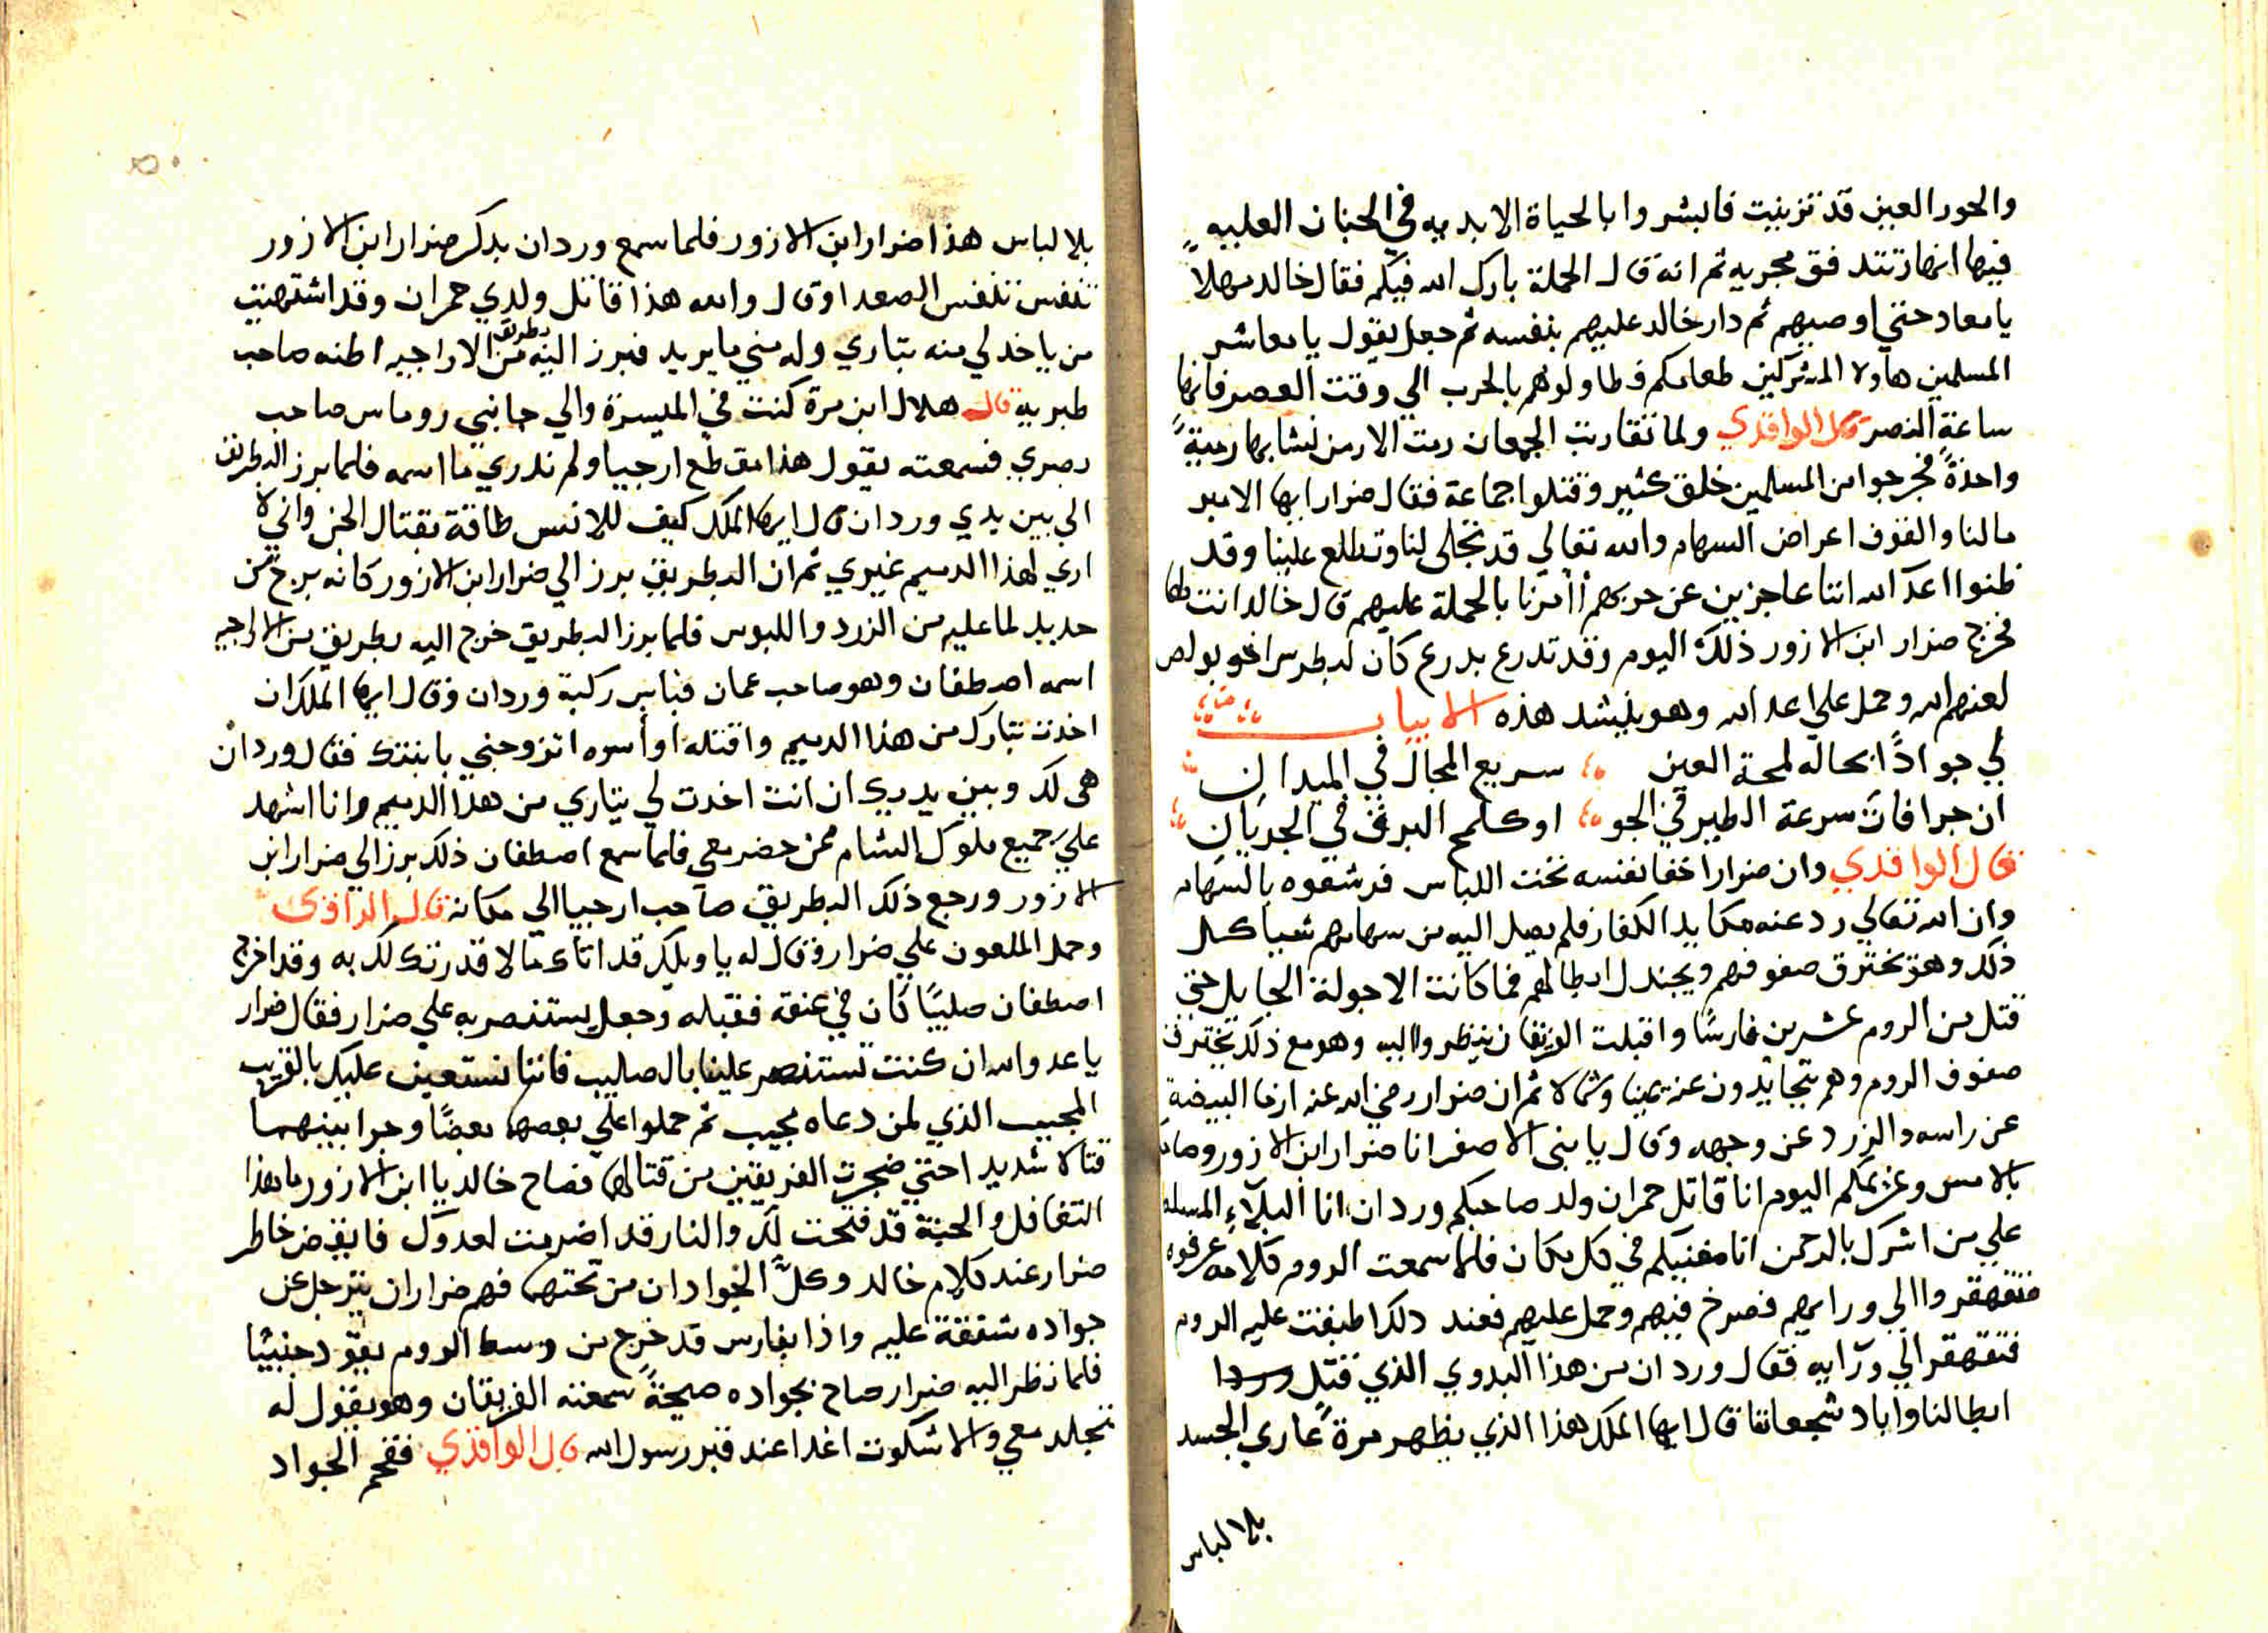 والحور العين قد تزينت فابشروا بالحياة الابديه في الجنان العليه
فيها انهار تتدفق مجريه ثم انه قال الحملة بارك الله فيكم فقال خالد مهلاً
يا معاد حتي اوصيهم ثم دار خالد عليهم بنفسه ثم جعل يقول يا معاشر
المسلمين هاولا المشركين طعامكم فطاولوهم بالحرب الي وقت العصر فانها
ساعة النصر قال الواقدي ولما تقاربت الجمعان رمت الارمن نشابها رمية
واحدةً فجرحوا من المسلمين خلق كثير وقتلوا جماعة فقال ضرار ايها الامير
مالنا والقوف اعراض السهام والله تعالي قد تجلى لنا وتطلع علينا وقد
ظنوا اعد الله اننا عاجزين عن حربهم أأمرنا بالحملة عليهم قال خالد انت لها
فخرج ضرار ابن الازور ذلك اليوم وقد تدرع بدرع كان لبطرس اخو بولص
لعنهم الله وحمل علي اعد الله وهو ينشد هذه الابيات
لي جواداً بحاله لمحة العين سريع المجال في الميدان
ان جرا فات سرعة الطير في الجو او كلمح البرق في الجريان
قال الواقدي وان ضرار اخفا نفسه تحت اللباس فرشقوه بالسهام
وان الله تعالي رد عنه مكايد الكفار فلم يصل اليه من سهامهم شيا كل
ذلك وهو تخترق صفوفهم ويجندل ابطالهم فما كانت الا جولة الجايل حتي
قتل من الروم عشرين فارسًا واقبلت الفريقان ينظروا اليه وهو مع ذلك تخترق
صفوف الروم وهم يتجايدون عنه يمينا وشمالا ثم ان ضرار رضي الله عنه ارما البيضة
عن راسه والزرد عن وجهه وقال يا بني الاصفر انا ضرار ابن الازور وصاحبكم
بالامس وغريمكم اليوم انا قاتل حمران ولد صاحبكم وردان انا البلاء المسلط
علي من اشرك بالرحمن انا مفنيكم في كل مكان فلما سمعت الروم كلامه عرفوه
فتقهقروا الي ورايهم فصرخ فيهم وحمل عليهم فعند دلك اطبقت عليه الروم
فتقهقر الي ورايه فقال وردان من هذا البدوي الذي قتل
ابطالنا واباد شجعاننا قال ايها الملك هذا الذي يظهر مرةً عاري الجسد
بلا لباس
بلا لباس هذا ضرار ابن الازور فلما سمع وردان بدكر ضرار ابن الازور
تنفس تنفس الصعدا وقال والله هذا قاتل ولدي حمران وقد اشتهيت
من ياخد لي منه بتاري وله مني ما يريد فبرز اليه بطريق من الاراجيه اظنه صاحب
طبريه قال هلال ابن مرة كنت في الميسرة والي جانبي روماس صاحب
بصري فسمعته يقول هذا مقطع ارجيا ولم ندري ما اسمه فلما برز البطريق
الي بين يدي وردان قال ايها الملك كيف للانس طاقة بقتال الجن واني لا
اري لهذا الدميم غيري ثم ان البطريق برز الي ضرار ابن الازور كانه برج من
حديد لما عليه من الزرد واللبوس فلما برز البطريق خرج اليه بطريق من الاراجيه
اسمه اصطفان وهو صاحب عمان فباس ركبة وردان وقال ايها الملك ان
اخدت بتارك من هذا الدميم واقتله او أسره اتزوجني بابنتك فقال وردان
هي لك وبين يديك ان انت اخدت لي بتاري من هذا الدميم وانا اشهد
علي جميع ملوك الشام ممن حضر معي فلما سمع اصطفان ذلك برز الي ضرار ابن
الازور ورجع ذلك البطريق صاحب ارجيا الي مكانه قال الواقدي
وحمل الملعون علي ضرار وقال له يا ويلك قد اتاك ما لا قدرتك لك به وقد اخرج
اصطفان صليبًا كان في عنقه فقبله وجعل يستنصر به علي ضرار فقال ضرار
يا عدو الله ان كنت تستنصر علينا بالصليب فاننا نستعين عليك بالقريب
المجيب الذي لمن دعاه يجيب ثم حملوا علي بعضهما بعضًا وجرا بينهما
قتالا شديدا حتي ضجرت الفريقين من قتالهما فصاح خالد يا ابن الازور ما هذا
التغافل والجنة قد فتحت لك والنار قد اضرمت لعدوك فايقض خاطر
ضرار عند كلام خالد وكلَّ الجوادان من تحتهما فهم ضرار ان يترجل عن
جواده شفقة عليه واذا بفارس قد خرج من وسط الروم يقود جنيبًا
فلما نظر اليه ضرار صاح بجواده صيحةً سمعته الفريقان وهو يقول له
تجلد معي والا شكوت اغدا عند قبر رسول الله قال الواقدي فقحم الجواد